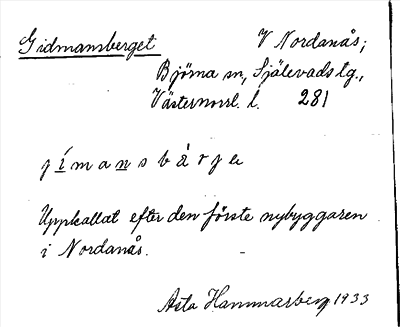 Gidmansberget V Nordanås;
Björna sn, Själevads tg.,
Västernorrl. l. 281
j í m a n s b à r j e
Uppkallat efter den förste nybyggaren
i Nordanås.
Asta Hammarberg 1933